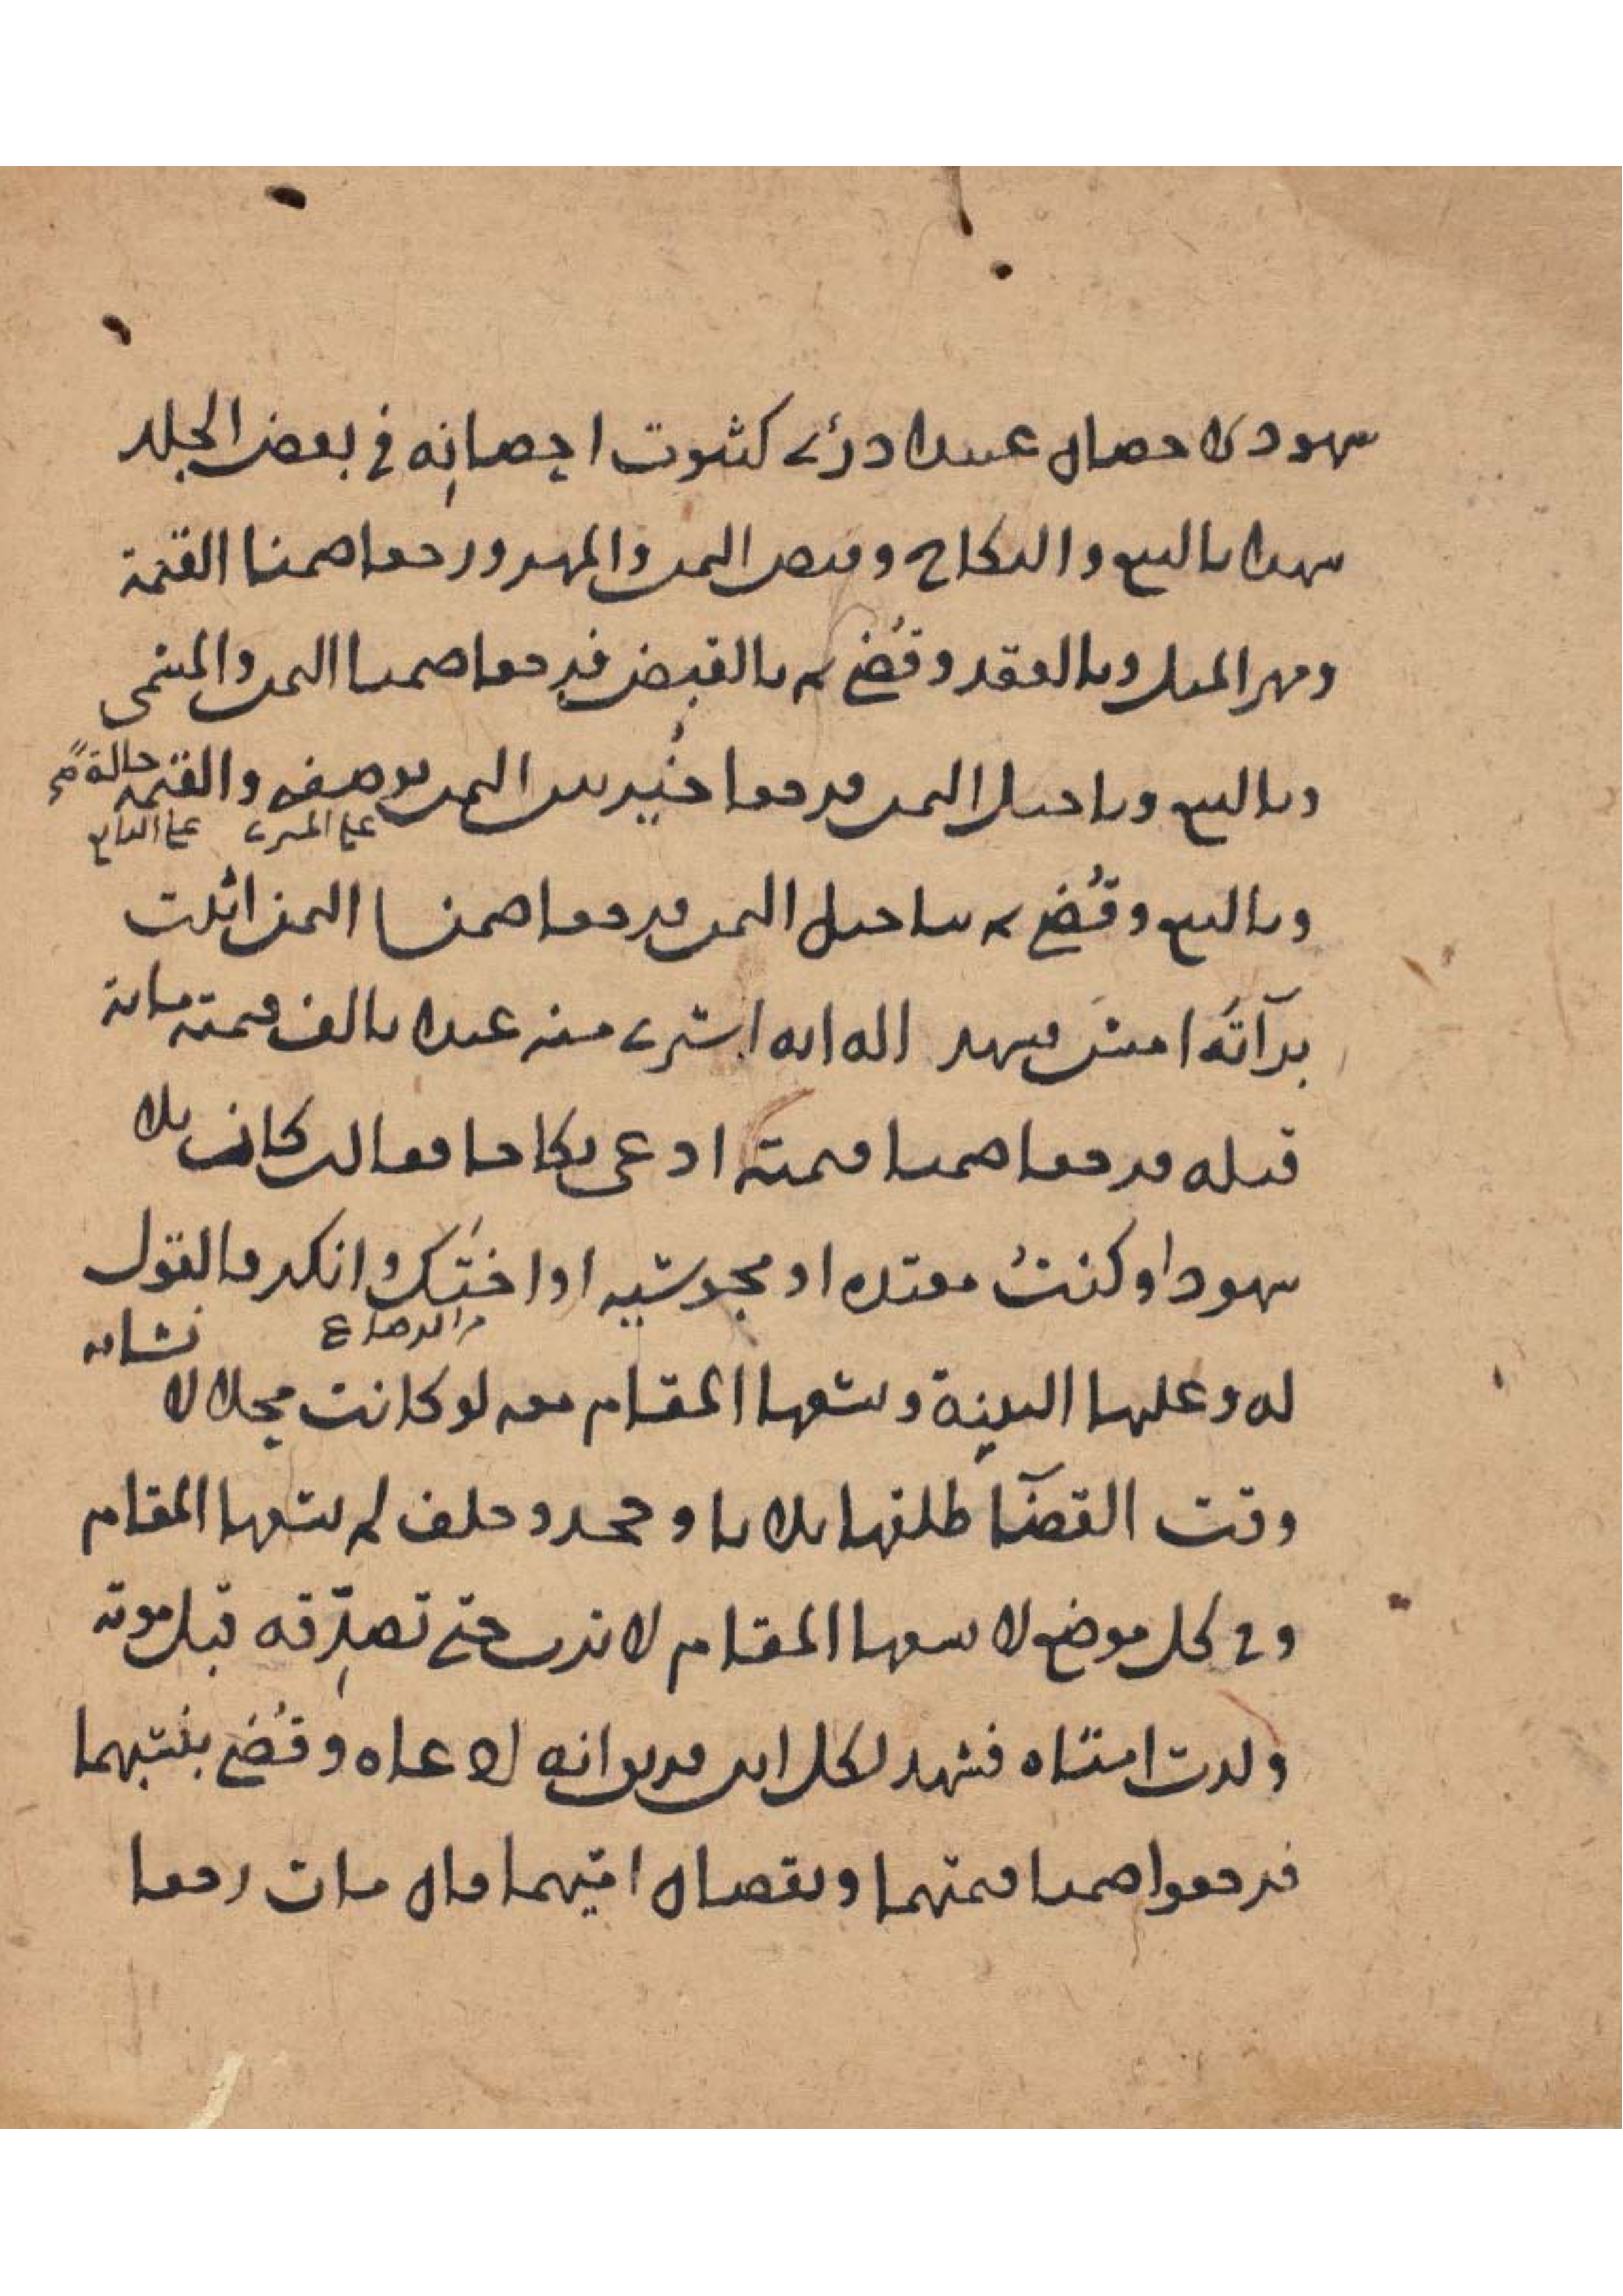 شهود الاحصان عبيدا درئ كثبوت احصانه في بعض الجلد
شهدا بالبيع والنكاح وقبض الثمن والمهر ورجعا ضمنا القيمة
ومهر المثل وبالعقد وقضي به بالقبض فرجعا ضمنا الثمن والمسمى
وبالبيع وبتاجيل الثمن فرجعا خير بين الثمن بوصفه والقيمة حالة
على المشتري على البائع
وبالبيع وقضي به بتاجيل الثمن فرجعا ضمنا الثمن اثبت
برآته امس فشهد اله انه اشترى منه عبدا بالف قيمته مائة
قبله فرجعا ضمنا قيمته ادعى نكاحا فقالت كان بلا
شهود او كنت معتدة او مجوسية او اختك وانكر فالقول
من الرضاع
له وعليها البينة وسعها المقام معه لو كانت محلا لانشائه
وقت القضآ طلقها ثلاثا وجحد وحلف لم يسعها المقام
وفي كل موضع لا يسعها المقام لا ترث حتى تصدقه قبل موته
ولدت امتاه فشهد لكل ابن فريق انه ادعاه وقضي بنسبهما
فرجعوا ضمنا قيمتهما ونقصان اميهما فان مات رجعا